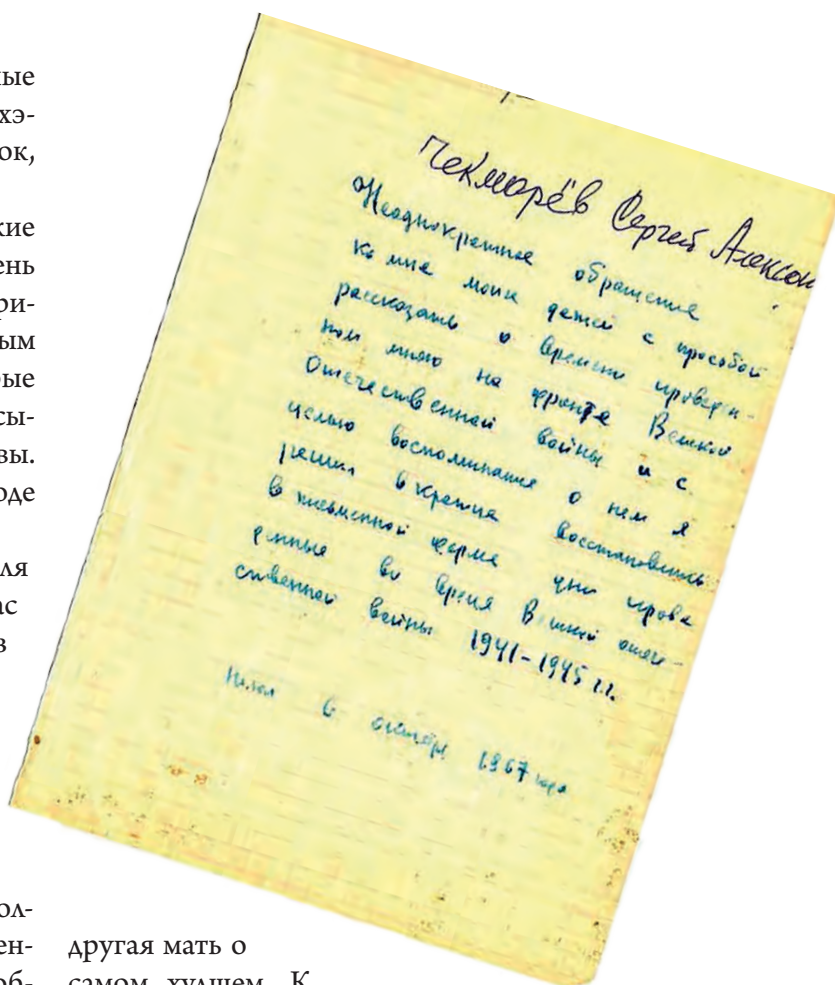 ые
хэ-
ок,
кие
ень
ри-
ым
ые
сы-
вы.
оде
ля
ас
в
ол-
ен-
об-
Чекмарёв Сергей Алексан
Неоднократное обращение
ко мне моих детей с просьбой
рассказать о времени проведен-
ном мною на фронте Великой
Отечественной войны и с
целью воспоминания о нем я
решил вкратце восстановить
в письменной форме дни прове
денные во время Великой отече-
ственной войны 1941-1945 г.г.
Начал в октябре 1967 года
другая мать о
самом худшем. К